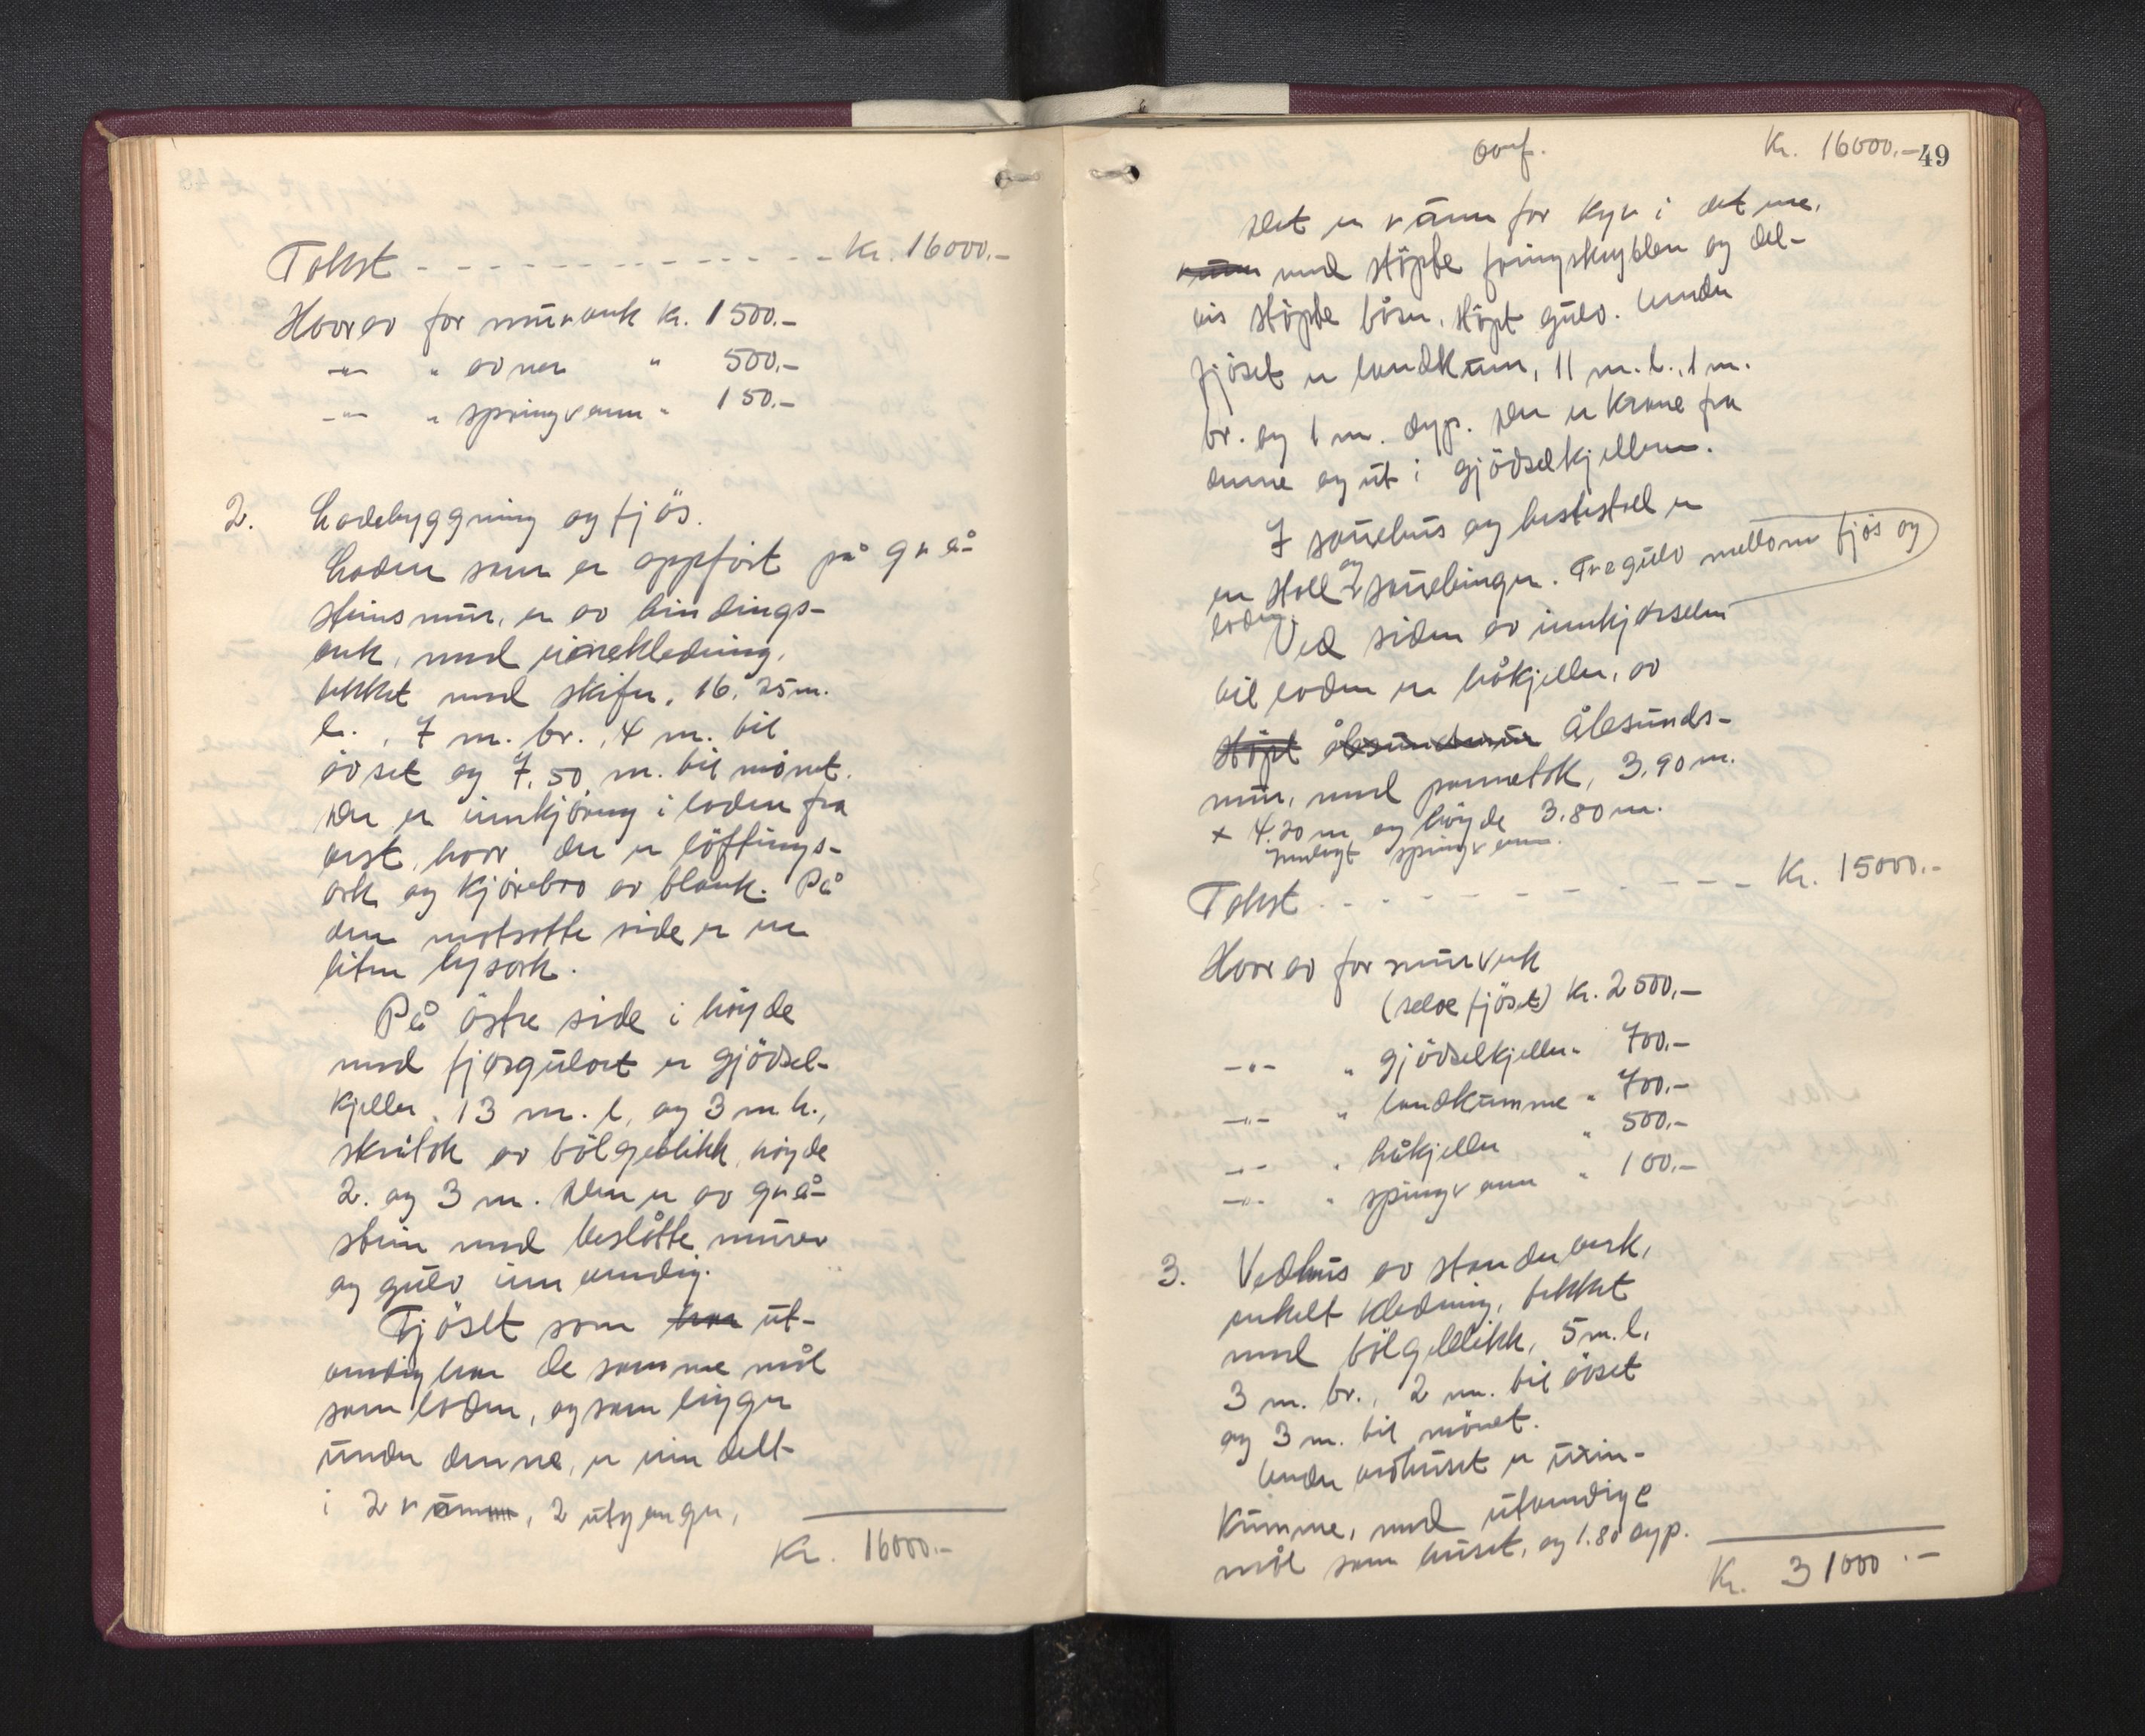 Takst - - - - - - - - - - - - - Kr. 16000.-
Hvorav for murverk Kr. 1500.-
-"- " ovner " 500.-
-"- " springvann " 150.-
2. Ladebyggning og fjös.
Laden som er oppfört på grå-
steinsmur, er av bindings-
verk, med kledning,
tekket med skifer, 16,25 m.
l., 7 m. br., 4 m. til
övset og 7,50 m. til mönet.
Der er innkjöring i laden fra
vest, hvor der er löftings-
ark og kjörebro av plank. På
den motsatte side er en
liten lysark.
På östre side i höyde
med fjösgulvet er gjödsel-
kjeller. 13 m. l. og 3 m. b.,
skråtak av bölgeblikk, höyde
2. og 3 m. Den er av grå-
stein med beslåtte murer
og gulv innvendig.
Fjöset som har ut-
vendig har de samme mål
som laden, og som ligger
under denne, er inndelt
i 2 rum, 2 utganger,
Kr. 16000.-
Overf. Kr. 16000.- 49
Det er rum for kyr i det ene,
rum med stöpte foringskrybber og del-
vis stöpte båser, stöpt gulv. Under
fjöset er landkum, 11 m. l., 1 m.
br. og 1 m. dyp. Der er krane fra
denne og ut i gjödselkjelleren.
I sauehus og hestestall er
en stall og sauebinger. Tregulv mellom fjös og
laden.
Ved siden av innkjörselen
til laden er håkjeller, av
stöpt ålesundmur Ålesunds-
mur, med pannetak, 3,90 m.
x 4.20 m og höyde 3.80 m.
Innlagt springvann.
Takst - - - - - - - - - - Kr. 15000.-
Hvorav for murverk
(selve fjöset) Kr. 2500.-
-"- " gjödselkjeller " 700.-
-"- " landkumme " 700.-
-"- " håkjeller " 500.-
-"- " springvann " 100.-
3. Vedhus av stenderverk,
enkelt kledning, tekket
med bölgeblikk, 5 m. l.
3 m. br., 2 m. til övset
og 3 m. til mönet.
Under vedhuset er urin-
kumme, med utvendige
mål som huset, og 1.80 dyp.
Kr. 31000.-